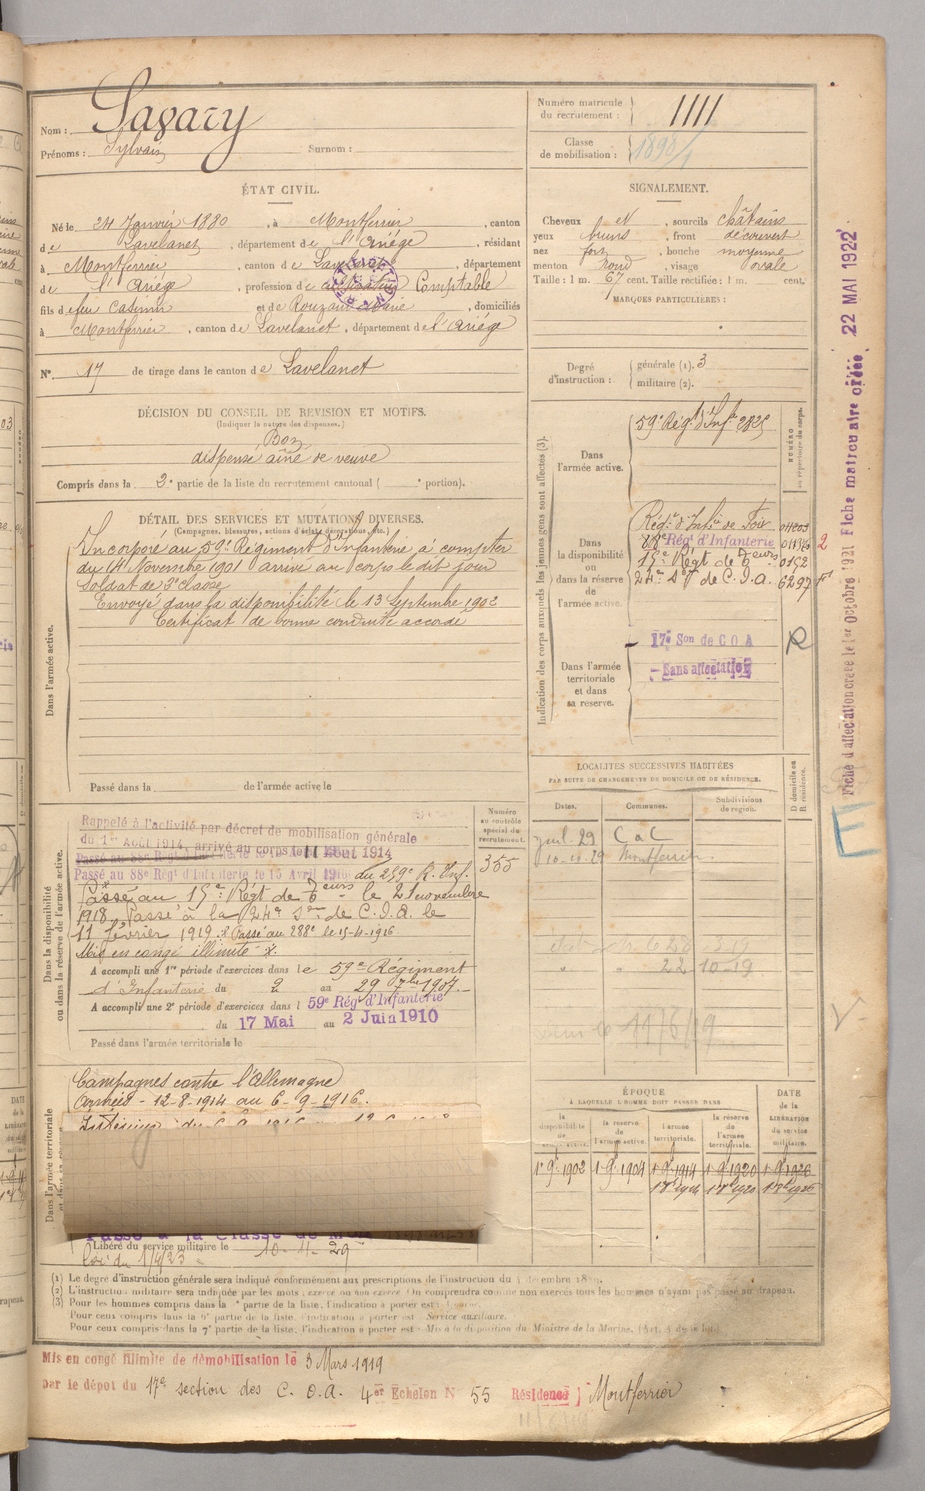 Nom : Lagary
Prénoms : Sylvain Surnom :
Numéro matricule
du recrutement : 1111
Classe
de mobilisation : 1890/1
ÉTAT CIVIL.
Né le 24 Janvier 1880, à Montferrier, canton
de Lavelanet, département de l'Ariége, résidant
à Montferrier, canton de Lavelanet, département
de l'Ariége, profession de Comptable
fils de feu Casimir et de Rouzaud Marie, domiciliés
à Montferrier, canton de Lavelanet, département de l'Ariége
N° 17 de tirage dans le canton de Lavelanet
SIGNALEMENT.
Cheveux et, sourcils châtains
yeux bruns, front découvert
nez fort, bouche moyenne
menton Rond, visage ovale
Taille : 1 m. 67 cent. Taille rectifiée : 1 m. cent.
MARQUES PARTICULIÈRES :
Degré
d'instruction :
générale (1). 3
militaire (2).
DÉCISION DU CONSEIL DE REVISION ET MOTIFS.
(Indiquer la nature des dispenses.)
Bon
dispensé aîné de veuve
Compris dans la 2e partie de la liste du recrutement cantonal ( e portion).
DÉTAIL DES SERVICES ET MUTATIONS DIVERSES.
(Campagnes, blessures, actions d'éclat, décorations, etc.)
Dans l'armée active.
Incorporé au 59e Régiment d'Infanterie à compter
du 14 Novembre 1901 arrivé au corps le dit jour
Soldat de 2e classe
Envoyé dans la disponibilité le 13 Septembre 1902
Certificat de bonne conduite accordé
Passé dans la de l'armée active le
Indication des corps auxquels les jeunes gens sont affectés (3).
NUMÉRO
au répertoire du corps.
Dans
l'armée active.
59e Rég.t d'Inf.ie 2825
Dans
la disponibilité
ou
dans la réserve
de
l'armée active.
Rég.t d'Inf.ie de Foix 011203
88e Rég.t d'Infanterie 011326 2
15e Rég.t de 0152
24e Son de C.O.A. 6297
Dans l'armée
territoriale
et dans
sa réserve.
17e Son de C O A
Sans affectation
R
Fiche d'affectation créée le 1er Octobre 1921 Fiche matriculaire créée 22 MAI 1922
E
LOCALITÉS SUCCESSIVES HABITÉES
PAR SUITE DE CHANGEMENTS DE DOMICILE OU DE RÉSIDENCE.
Dates. Communes. Subdivisions
de région. D domicile ou
R résidence.
juil. 29 C a C
10-11-29 Montferrier
22 10-19
Dans la disponibilité
ou dans la réserve de l'armée active.
Numéro
au contrôle
spécial du
recrutement.
355
Rappelé à l'activité par décret de mobilisation générale
du 1er Août 1914, arrivé au corps le 11 Août 1914
Passé au 88e Rég.t d'Infanterie le 15 Avril 1916 du 259e R. Inf.
Passé au 15e Rég.t de le 21 novembre
1918. Passé à la 24e Son de C.O.A. le
11 février 1919. x Passé au 288e le 15-4-1916
Mis en congé illimité x.
A accompli une 1re période d'exercices dans le 59e Régiment
d'Infanterie du 2 au 29 7bre 1907.
A accompli une 2e période d'exercices dans l 59e Rég.t d'Infanterie
du 17 Mai au 2 Juin 1910
Passé dans l'armée territoriale le
Dans l'armée territoriale
Campagnes contre l'Allemagne
Armées - 12-8-1914 au 6-9-1916.
Libéré du service militaire le 10-4-29
loi du 1/4/23
ÉPOQUE
À LAQUELLE L'HOMME DOIT PASSER DANS
la
disponibilité
de
l'armée active.
la réserve
de
l'armée active.
l'armée
territoriale.
la réserve
de
l'armée
territoriale.
DATE
de la
LIBÉRATION
du service
militaire.
1er 9bre 1902 1 9bre 1904 1 9bre 1914 1 9bre 1920 1 9bre 1926
(1) Le degré d'instruction générale sera indiqué conformément aux prescriptions de l'instruction du décembre
(2) L'instruction militaire sera indiquée par les mots : exercé ou non exercé. On comprendra comme non exercés tous les hommes n'ayant pas passé au drapeau.
(3) Pour les hommes compris dans la e partie de la liste, l'indication à porter est :
Pour ceux compris dans la 6e partie de la liste, l'indication à porter est : Service auxiliaire.
Pour ceux compris dans la 7e partie de la liste, l'indication à porter est : Mis à la disposition du Ministre de la Marine.
Mis en congé illimité de démobilisation le 3 Mars 1919
par le dépôt du 17e section des C.O.A. 4e Echelon N° 55 Résidence } Montferrier